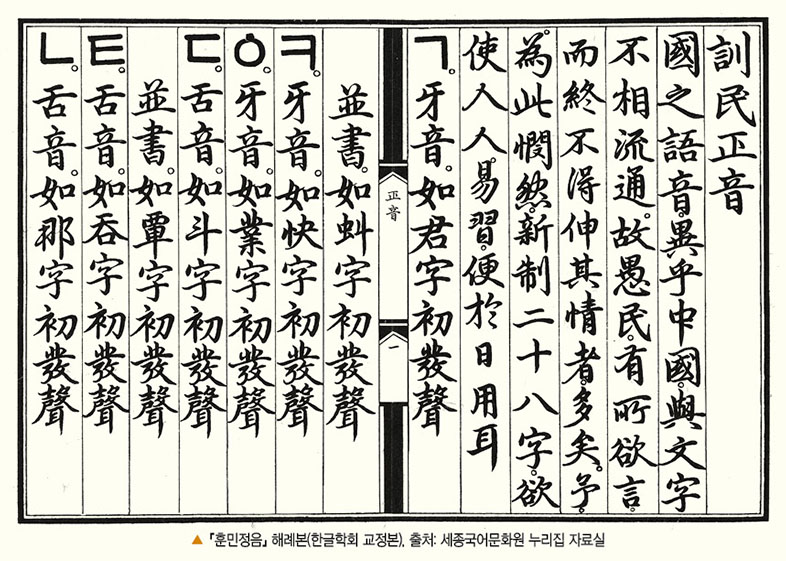 訓民正音
國之語音。異乎中國。與文字
不相流通。故愚民。有所欲言。
而終不得伸其情者。多矣。予。
為此憫然。新制二十八字。欲
使人人。易習。便於日用耳
ㄱ。牙音。如君字初發聲
正音
一
並書。如虯字初發聲
ㅋ。牙音。如快字初發聲
ㆁ。牙音。如業字初發聲
ㄷ。舌音。如斗字初發聲
並書。如覃字初發聲
ㅌ。舌音。如呑字初發聲
ㄴ。舌音。如那字初發聲
▲ 「훈민정음」 해례본(한글학회 교정본), 출처: 세종국어문화원 누리집 자료실